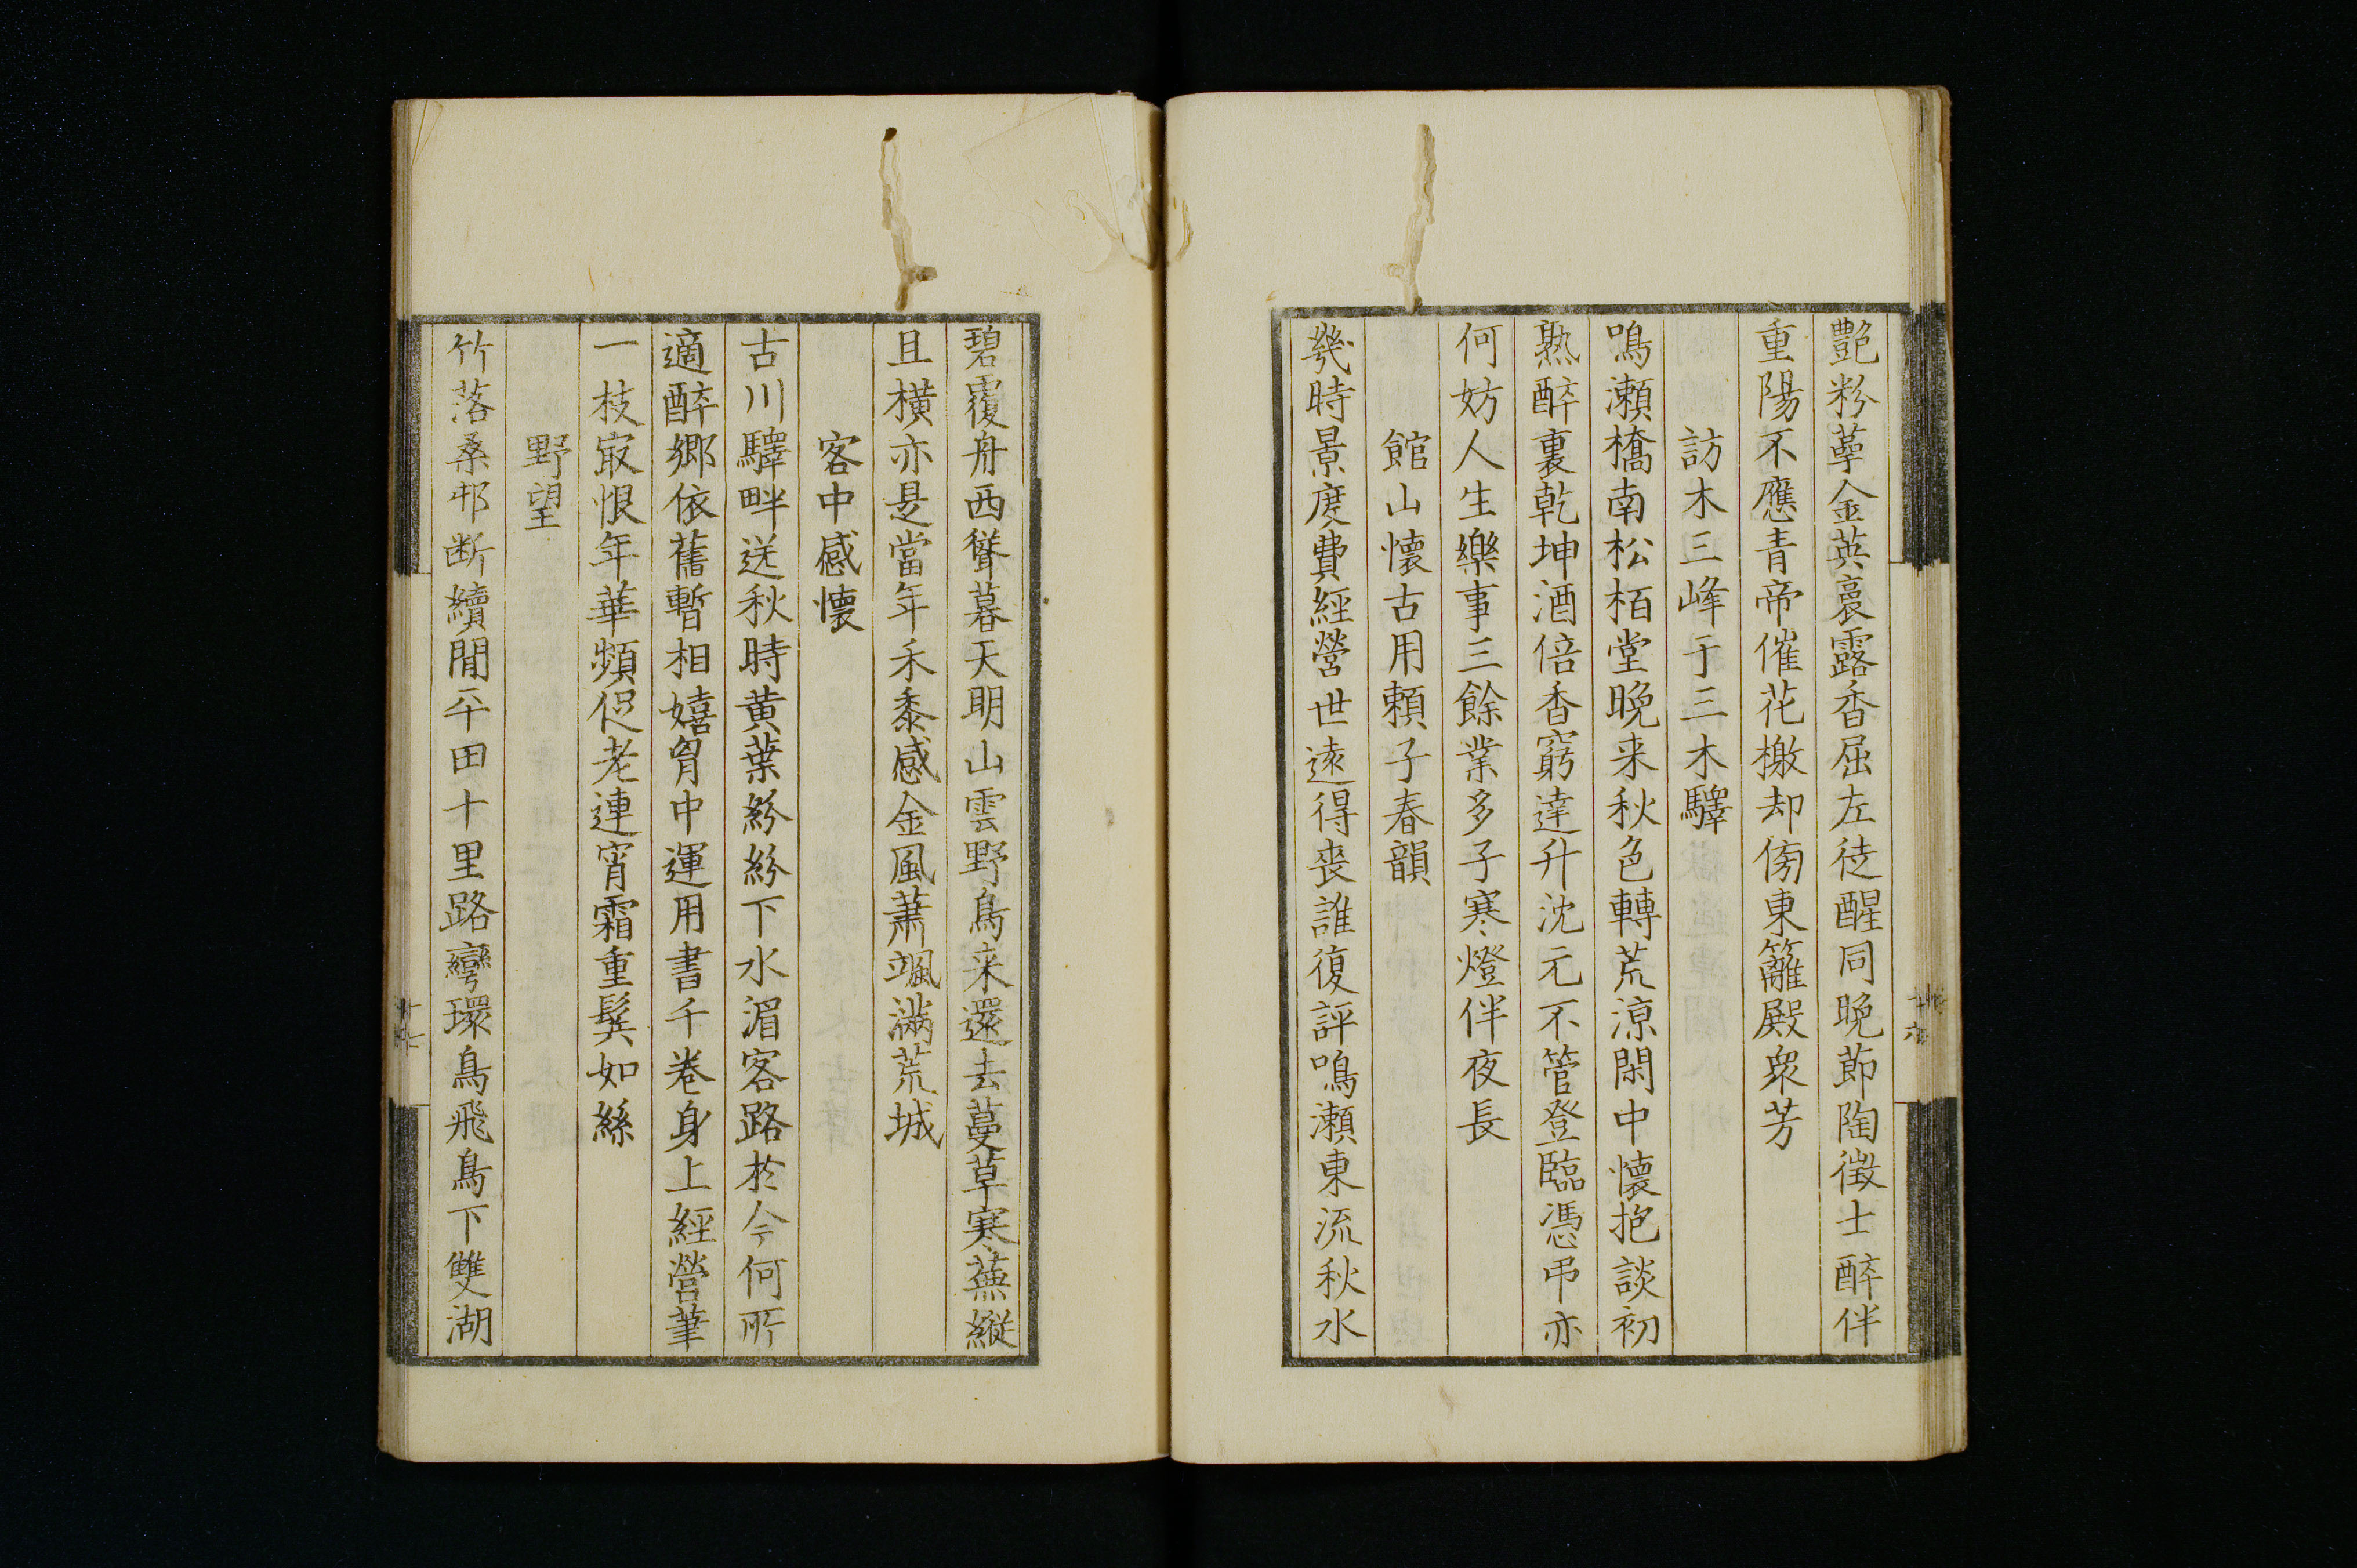 艷粉蕚金英裛露香屈左徒醒同晩莭陶徴士醉伴
重陽不應青帝催花檄却傍東籬殿衆芳
訪木三峰于三木驛
鳴瀬橋南松栢堂晩来秋色轉荒凉閑中懐抱談初
熟醉裏乾坤酒倍香窮達升沈元不管登臨憑弔亦
何妨人生樂事三餘業多子寒燈伴夜長
館山懐古用頼子春韻
幾時景慶費經營世遠得喪誰復評鳴瀬東流秋水
碧覆舟西聳暮天明山雲野鳥来還去蔓草寒蕪縦
且横亦是當年禾黍感金風蕭颯満荒城
客中感懐
古川驛畔送秋時黄葉紛紛下水湄客路於今何所
適醉郷依舊暫相嬉胷中運用書千卷身上經營筆
一枝㝡恨年華頻促老連宵霜重鬂如絲
野望
竹落桑邨断續間平田十里路彎環鳥飛鳥下雙湖
十六
十七